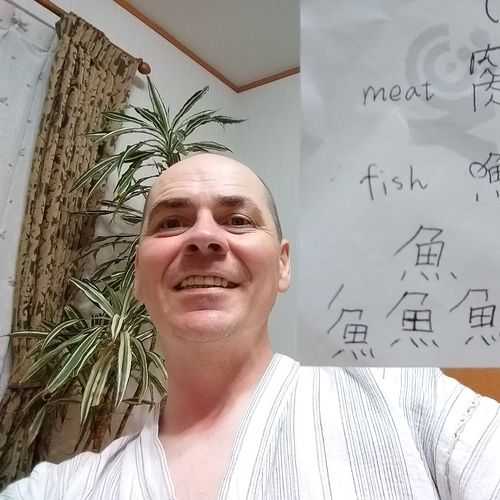 meat 肉
肉
fish 魚
魚
魚 魚 魚